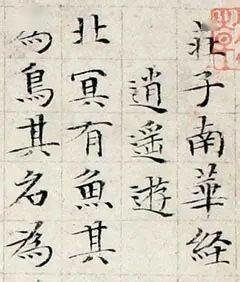 莊子南華経
逍遥遊
北冥有魚其
鳥其名為